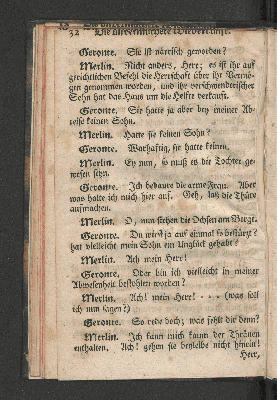 32 Die unvermuthete Wiederkunft.
Geronte. Sie ist närrisch geworden?
Merlin. Nicht anders, Herr; es ist ihr auf
gerichtlichen Befehl die Herrschaft über ihr Vermö-
gen genommen worden, und ihr verschwenderischer
Sohn hat das Haus um die Helfte verkauft.
Geronte. Sie hatte ja aber bey meiner Ab-
reise keinen Sohn.
Merlin. Hatte sie keinen Sohn?
Geronte. Warhaftig, sie hatte keinen.
Merlin. Ey nun, so muß es die Tochter ge-
wesen seyn.
Geronte. Ich bedaure die arme Frau. Aber
was halte ich mich hier auf. Geh, laß die Thüre
aufmachen.
Merlin. O, nun stehen die Ochsen am Berge.
Geronte. Du wirst ja auf einmal so bestürzt?
hat vielleicht mein Sohn ein Unglück gehabt?
Merlin. Ach mein Herr!
Geronte. Oder bin ich vielleicht in meiner
Abwesenheit bestohlen worden?
Merlin. Ach! mein Herr! - - - (was soll
ich nun sagen?)
Geronte. So rede doch; was fehlt dir denn?
Merlin. Ich kann mich kaum der Thränen
enthalten. Ach! gehen sie beyleibe nicht hinein!
Herr,